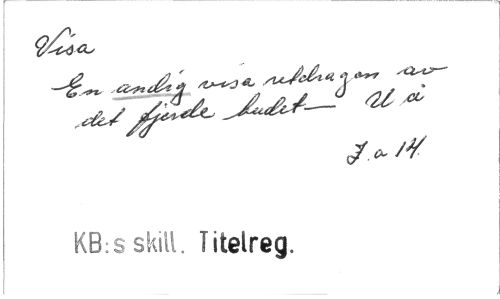 Visa
En andig visa utdragen av
det fjerde budet— U å
F. a 14.
KB:s skill. Titelreg.